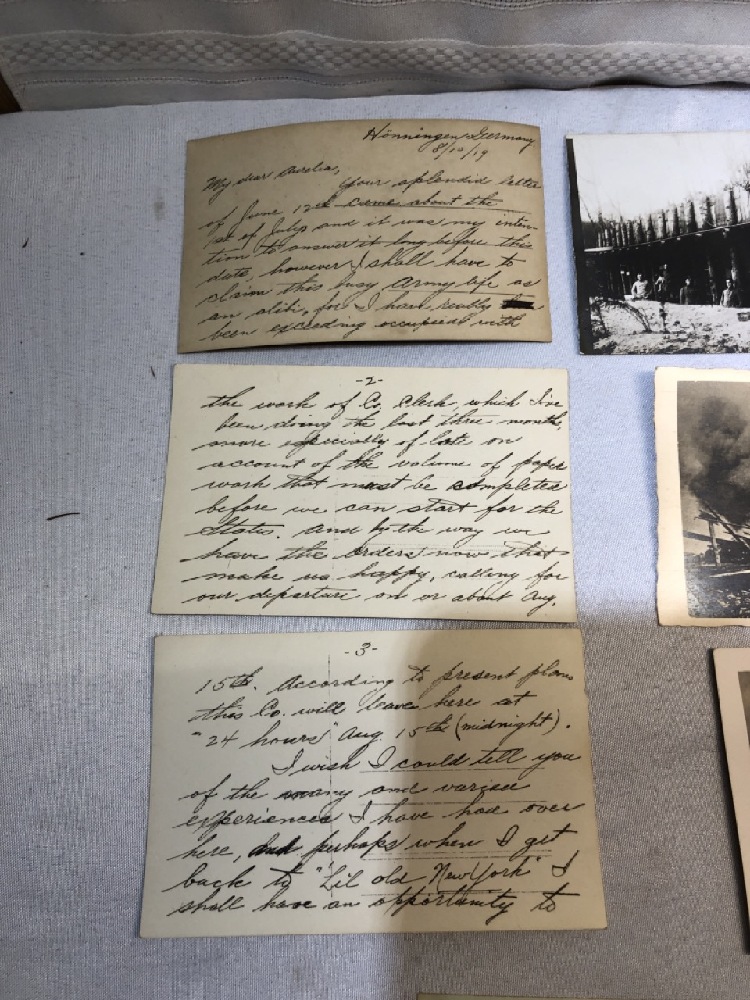 Hönningen, Germany
8/10/19
My dear Aurelia,
Your splendid letter
of June 12th came about the
1st of July and it was my inten-
tion to answer it long before this
date, however I shall have to
claim this busy Army life as
an alibi, for I have really
been exceeding occupied with
-2-
the work of Co. Clerk, which I've
been doing the last three month,
more especially of late on
account of the volume of paper
work that must be completed
before we can start for the
States. And by the way we
have the orders now that
make us happy, calling for
our departure on or about Aug.
-3-
15th. According to present plans
this Co. will leave here at
"24 hours" Aug. 15th (midnight).
I wish I could tell you
of the many and varied
experiences I have had over
here, and perhaps when I get
back to "Lil old New York" I
shall have an opportunity to